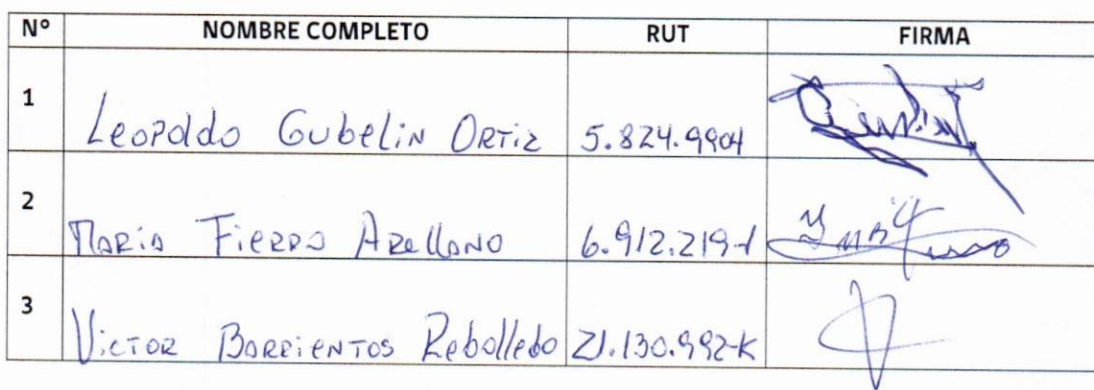 Nº NOMBRE COMPLETO RUT FIRMA
1 Leopoldo Gubelin Ortiz 5.824.990-1
2 Maria Fierro Arellano 6.912.219-1
3 Victor Barrientos Rebolledo 21.130.992-K